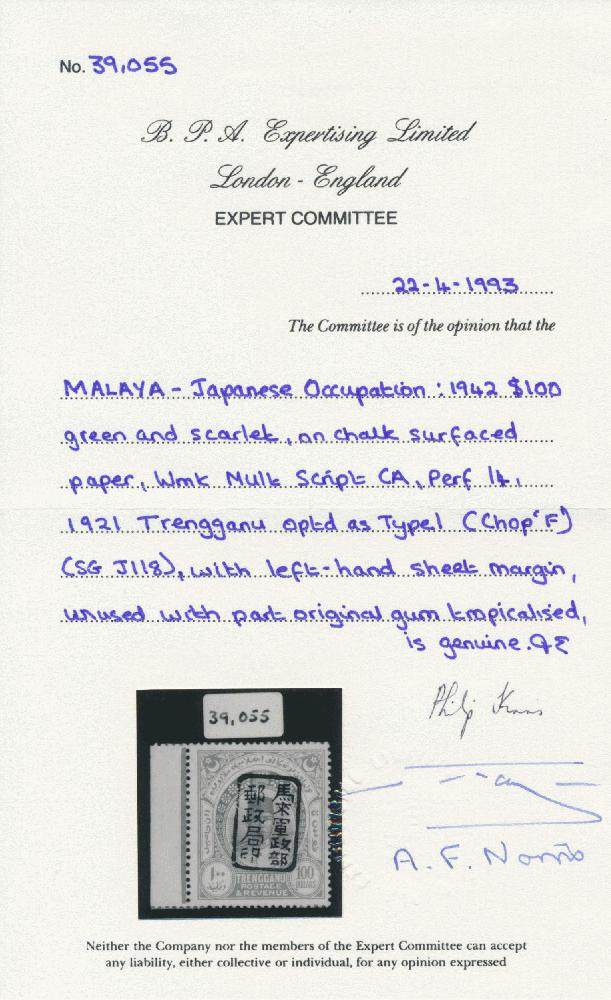 No. 39,055
B. P. A. Expertising Limited
London - England
EXPERT COMMITTEE
22-4-1993
The Committee is of the opinion that the
MALAYA - Japanese Occupation : 1942 $100
green and scarlet, on chalk surfaced
paper, Wmk Mult Script CA, Perf 14,
1921 Trengganu optd as Type 1 (Chop 'F')
(SG J118), with left-hand sheet margin,
unused with part original gum tropicalised,
is genuine.
39,055
馬来軍政部
郵政局印
TRENGGANU
POSTAGE
& REVENUE
100
DOLLARS
Philip
A. F. Norris
Neither the Company nor the members of the Expert Committee can accept
any liability, either collective or individual, for any opinion expressed